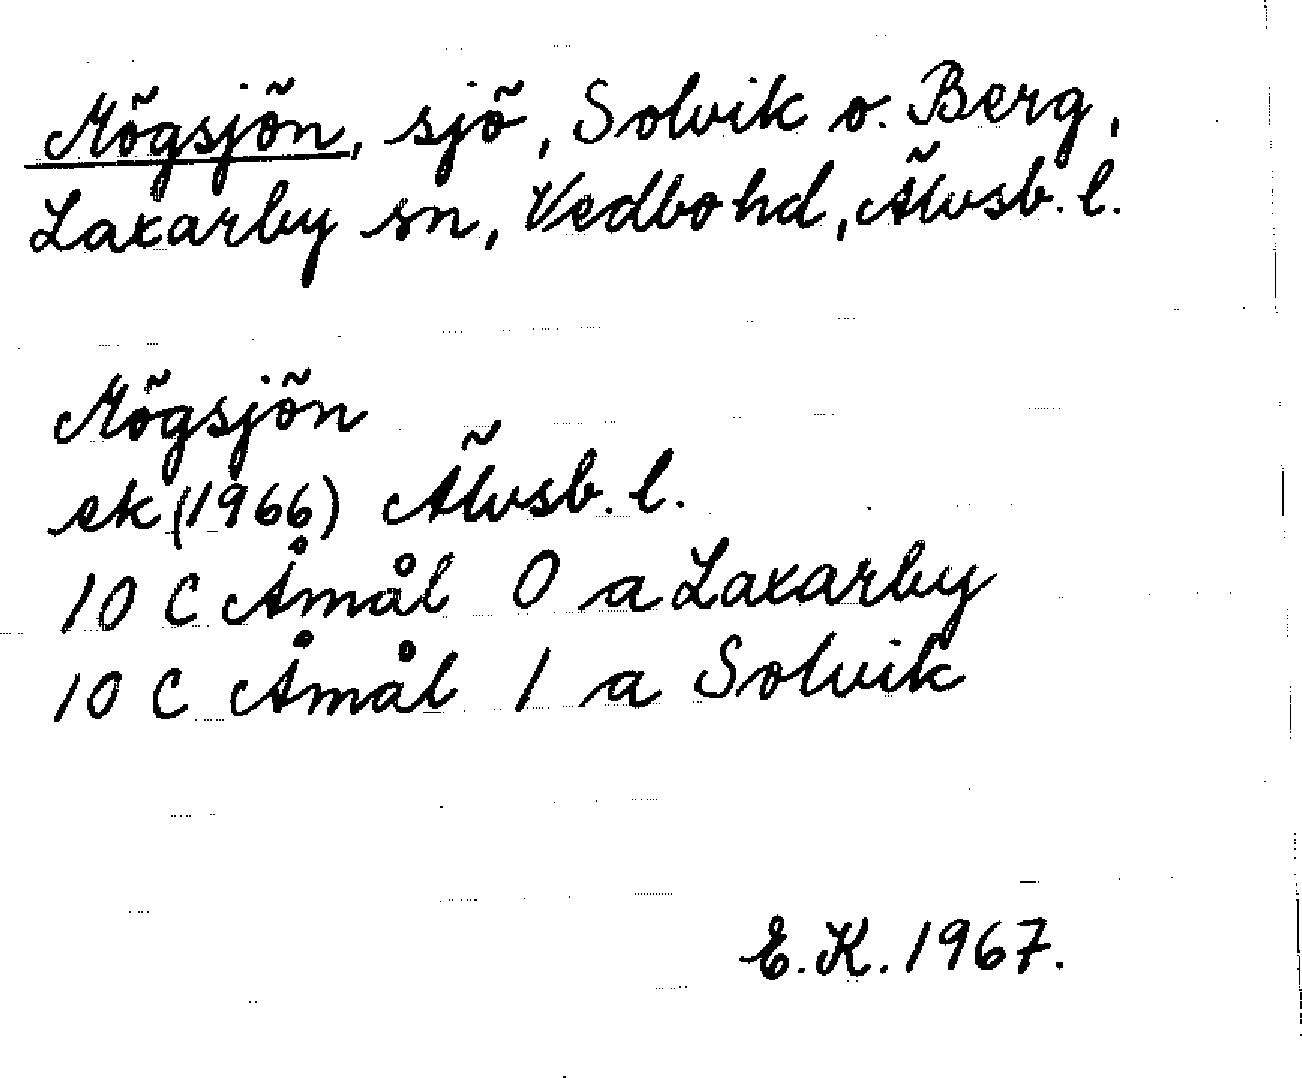 Mögsjön, sjö, Solvik o. Berg,
Laxarby sn, Vedbo hd, Älvsb. l.
Mögsjön
ek (1966) Älvsb. l.
10 C Åmål 0 a Laxarby
10 C Åmål 1 a Solvik
E.K. 1967.